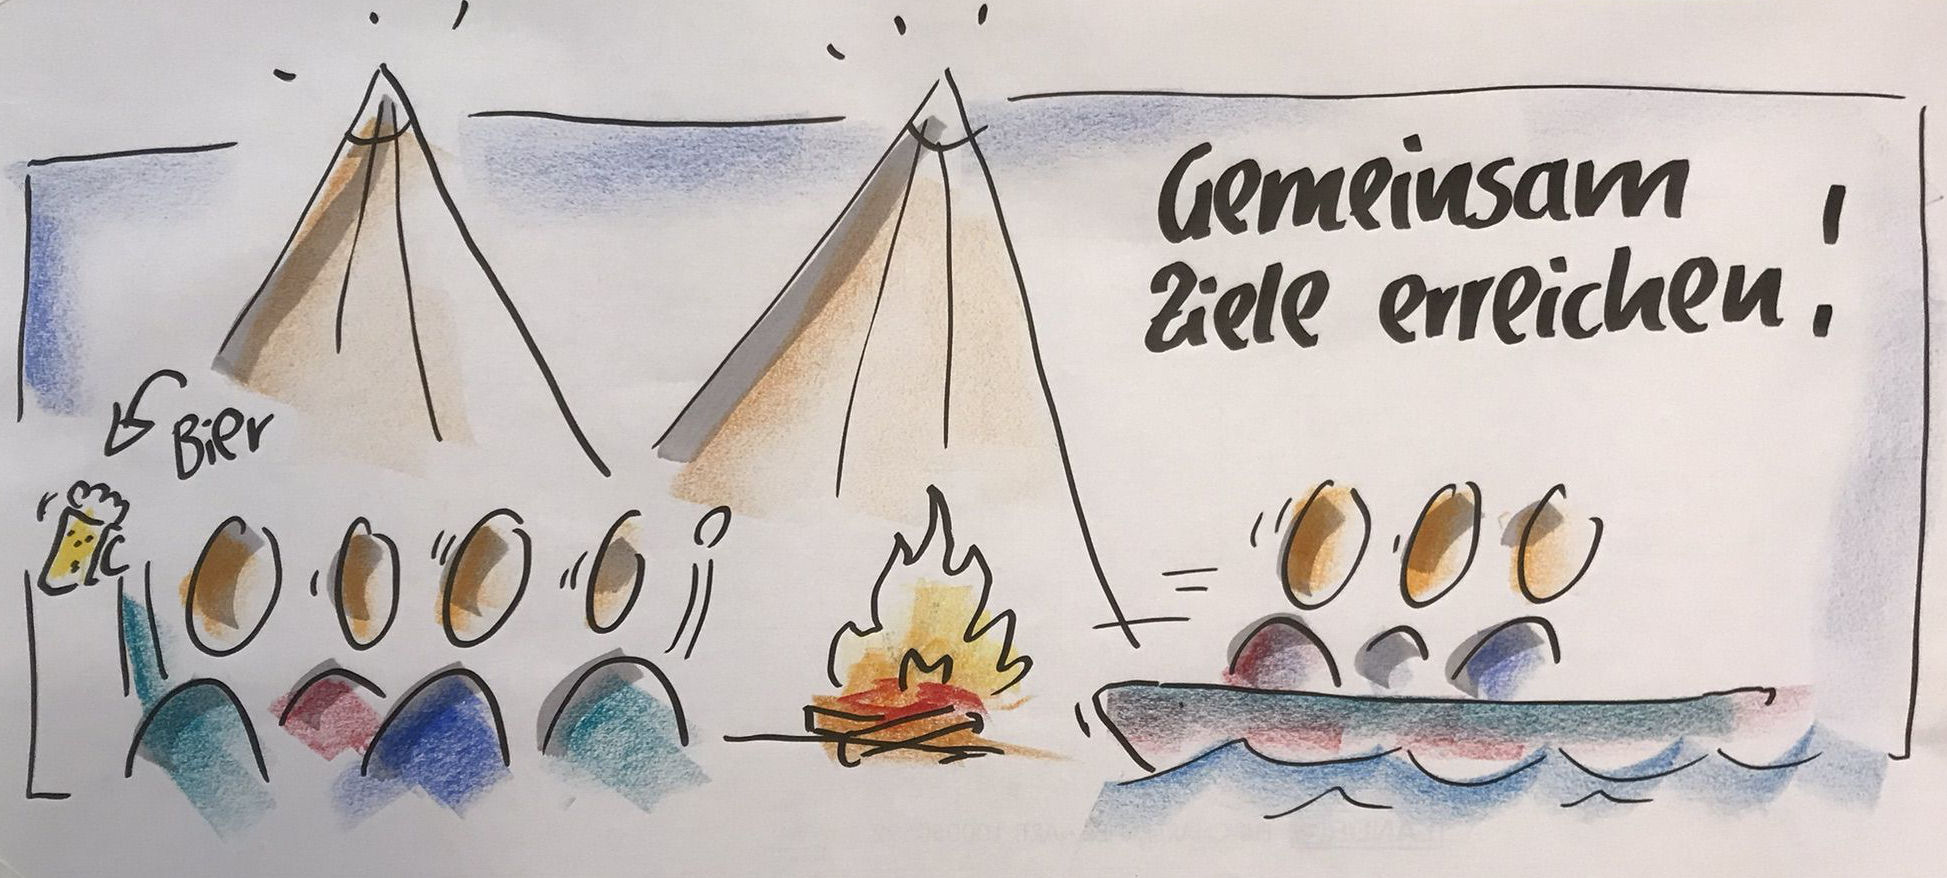 Gemeinsam
Ziele erreichen!
Bier